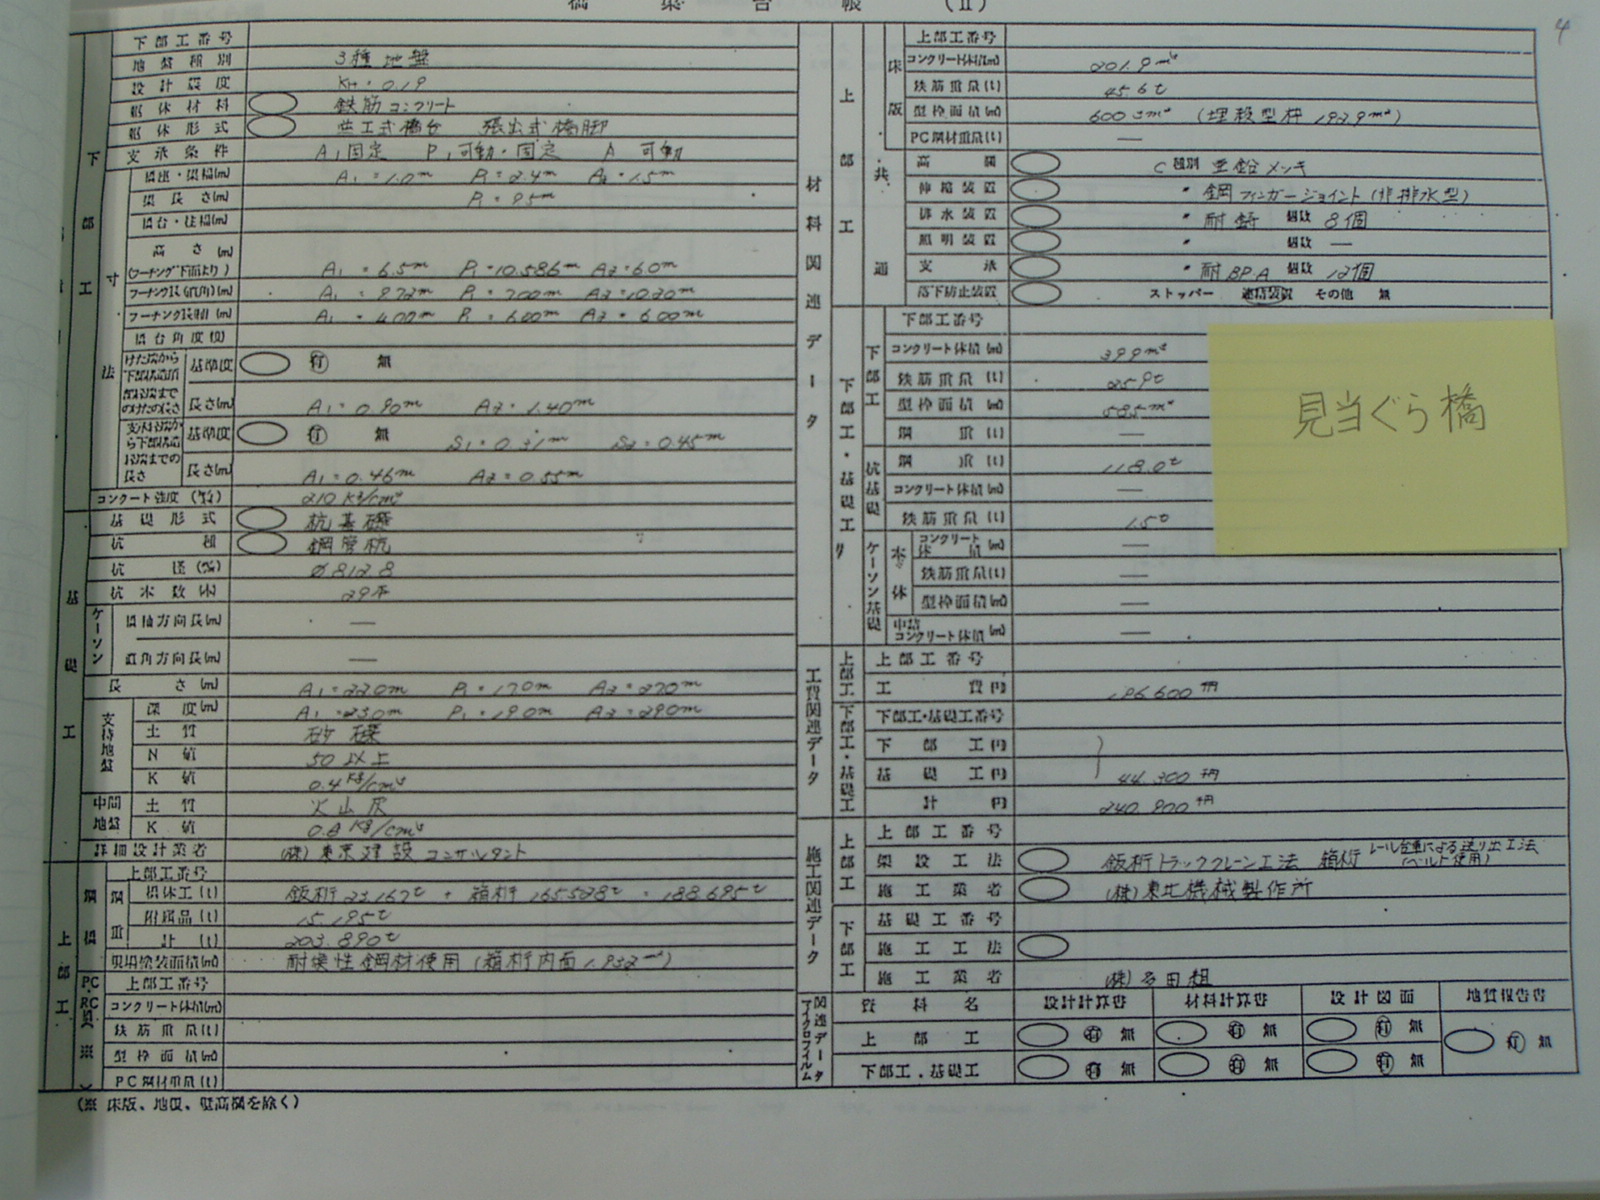 橋 梁 台 帳 (Ⅱ)
4
下部工
下部工番号
地盤種別 3種地盤
設計震度 KH=0.19
躯体材料 鉄筋コンクリート
躯体形式 張出式橋脚
支承条件 A₁固定 P₁可動・固定 A 可動
寸法
A₁=1.0m P₁=2.4m A₂=1.5m
梁長さ(m) P₁=9.5m
高さ(m)
(フーチング下面より) A₁=6.5m P₁=10.586m A₂=6.0m
A₁= P₁=7.00m A₂=10.20m
A₁=4.00m P₁=6.00m A₂=6.00m
橋台角度(度)
けた端から下部構造頂部縁端までのけたの長さ
基準度 有 無
長さ(m) A₁=0.90m A₂=1.40m
支承縁端から下部構造頂縁端までの長さ
基準度 有 無 S₁=0.31m S₂=0.45m
長さ(m) A₁=0.46m A₂=0.55m
コンクート強度 210 kg/cm²
基礎工
基礎形式 杭基礎
杭種 鋼管杭
杭径 φ812.8
杭本数(本) 29本
ケーソン
橋軸方向長(m) —
直角方向長(m) —
長さ(m) A₁=22.0m P₁=17.0m A₂=27.0m
支持地盤
深度(m) A₁=23.0m P₁=19.0m A₂=29.0m
土質 砂礫
N値 50以上
K値 0.4 kg/cm³
中間地盤
土質 火山灰
K値 0.8 kg/cm³
詳細設計業者 (株)東京建設コンサルタント
上部工
鋼橋
上部工番号
鋼重
橋体工(t) 鈑桁23.167t + 箱桁165.528t = 188.695t
附属品(t) 15.195t
計(t) 203.890t
現場塗装面積(㎡) 耐候性鋼材使用(箱桁内面1,952㎡)
PC・RC橋※
上部工番号
コンクリート体積(m)
鉄筋重量(t)
型枠面積(㎡)
PC鋼材重量(t)
(※ 床版、地覆、壁高欄を除く)
材料関連データ
上部工
床版
上部工番号
コンクリート体積(m) 201.9m³
鉄筋重量(t) 45.6t
型枠面積(㎡) (埋殺型枠 1929㎡)
PC鋼材重量(t) —
共通
高欄 C種別 亜鉛メッキ
伸縮装置 〃 鋼フィンガージョイント(非排水型)
排水装置 〃 耐錆 個数 8個
照明装置 〃 個数 —
支承 〃 耐BP.A 個数 12個
落下防止装置 ストッパー 連結装置 その他 無
下部工・基礎工
下部工
下部工番号
コンクリート体積(m) 399m³
鉄筋重量(t) 25.9t
型枠面積(㎡) 585㎡
鋼重(t) —
杭基礎
鋼重(t) 118.0t
コンクリート体積(m) —
鉄筋重量(t) 1.5t
ケーソン基礎
本体
コンクリート体積(m) —
鉄筋重量(t) —
型枠面積(㎡) —
中詰コンクリート体積(m) —
工費関連データ
上部工
上部工番号
工費 円 196.600千円
下部工・基礎工
下部工・基礎工番号
下部工 円
基礎工 円 44.300千円
計 円 240.900千円
施工関連データ
上部工
上部工番号
架設工法 鈑桁トラッククレーン工法 箱桁 レール台車による送り出し工法
(ベルト使用)
施工業者 (株)東北機械製作所
下部工
基礎工番号
施工工法
施工業者 (株)多田組
関連データ
マイクロフイルム
資料名 設計計算書 材料計算書 設計図面 地質報告書
上部工 有 無 有 無 有 無 有 無
下部工・基礎工 有 無 有 無 有 無
見当ぐら橋